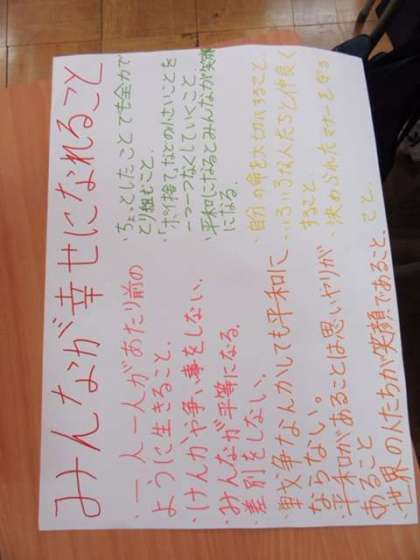 みんなが幸せになれること
・一人一人があたり前の
ように生きること。
・けんかや争い事をしない。
・みんなが平等になる。
差別をしない。
・戦争なんかしても平和に
ならない。
・平和があることは思いヤリが
あること
・世界の人たちが笑顔であること。
・ちょっとしたことでも全力で
とり組むこと。
・「ポイ捨て」などの小さいことを
一つ一つなくしていくこと
・平和になるとみんなが笑顔
になる。
・自分の命を大切にすること。
・いろいろな人たちと仲良く
すること。
・決められたマナーを守る
こと。